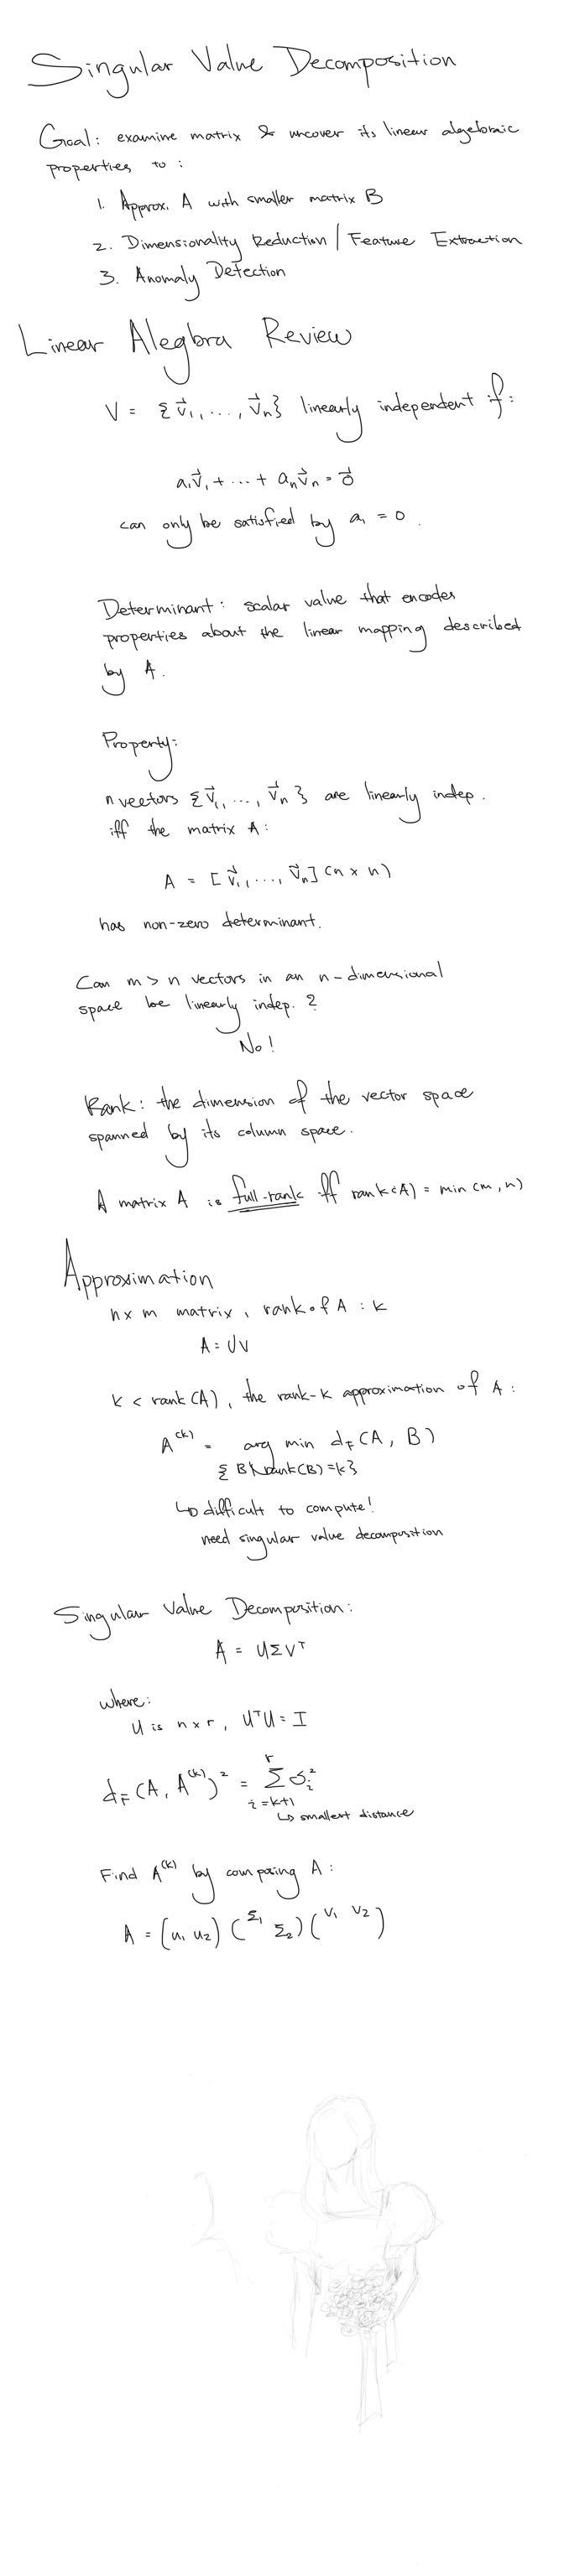 Singular Value Decomposition
Goal: examine matrix & uncover its linear algebraic
properties to:
1. Approx. A with smaller matrix B
2. Dimensionality Reduction / Feature Extraction
3. Anomaly Detection
Linear Alegbra Review
V = {v⃗₁, ..., v⃗ₙ} linearly independent if:
a₁v⃗₁ + ... + aₙv⃗ₙ = 0⃗
can only be satisfied by aᵢ = 0.
Determinant: scalar value that encodes
properties about the linear mapping described
by A.
Property:
n vectors {v⃗₁, ..., v⃗ₙ} are linearly indep.
iff the matrix A:
A = [v⃗₁, ..., v⃗ₙ] (n x n)
has non-zero determinant.
Can m > n vectors in an n-dimensional
space be linearly indep. ?
No!
Rank: the dimension of the vector space
spanned by its column space.
A matrix A is full-rank iff rank(A) = min(m, n)
Approximation
n x m matrix, rank of A : k
A = UV
k < rank(A), the rank-k approximation of A:
A⁽ᵏ⁾ = arg min d_F(A, B)
{B | rank(B) = k}
↳ difficult to compute!
need singular value decomposition
Singular Value Decomposition:
A = UΣVᵀ
where:
U is n x r, UᵀU = I
d_F(A, A⁽ᵏ⁾)² = Σ_{i=k+1}^{r} σᵢ²
↳ smallest distance
Find A⁽ᵏ⁾ by composing A:
A = (u₁ u₂) (Σ₁ Σ₂) (V₁ V₂)